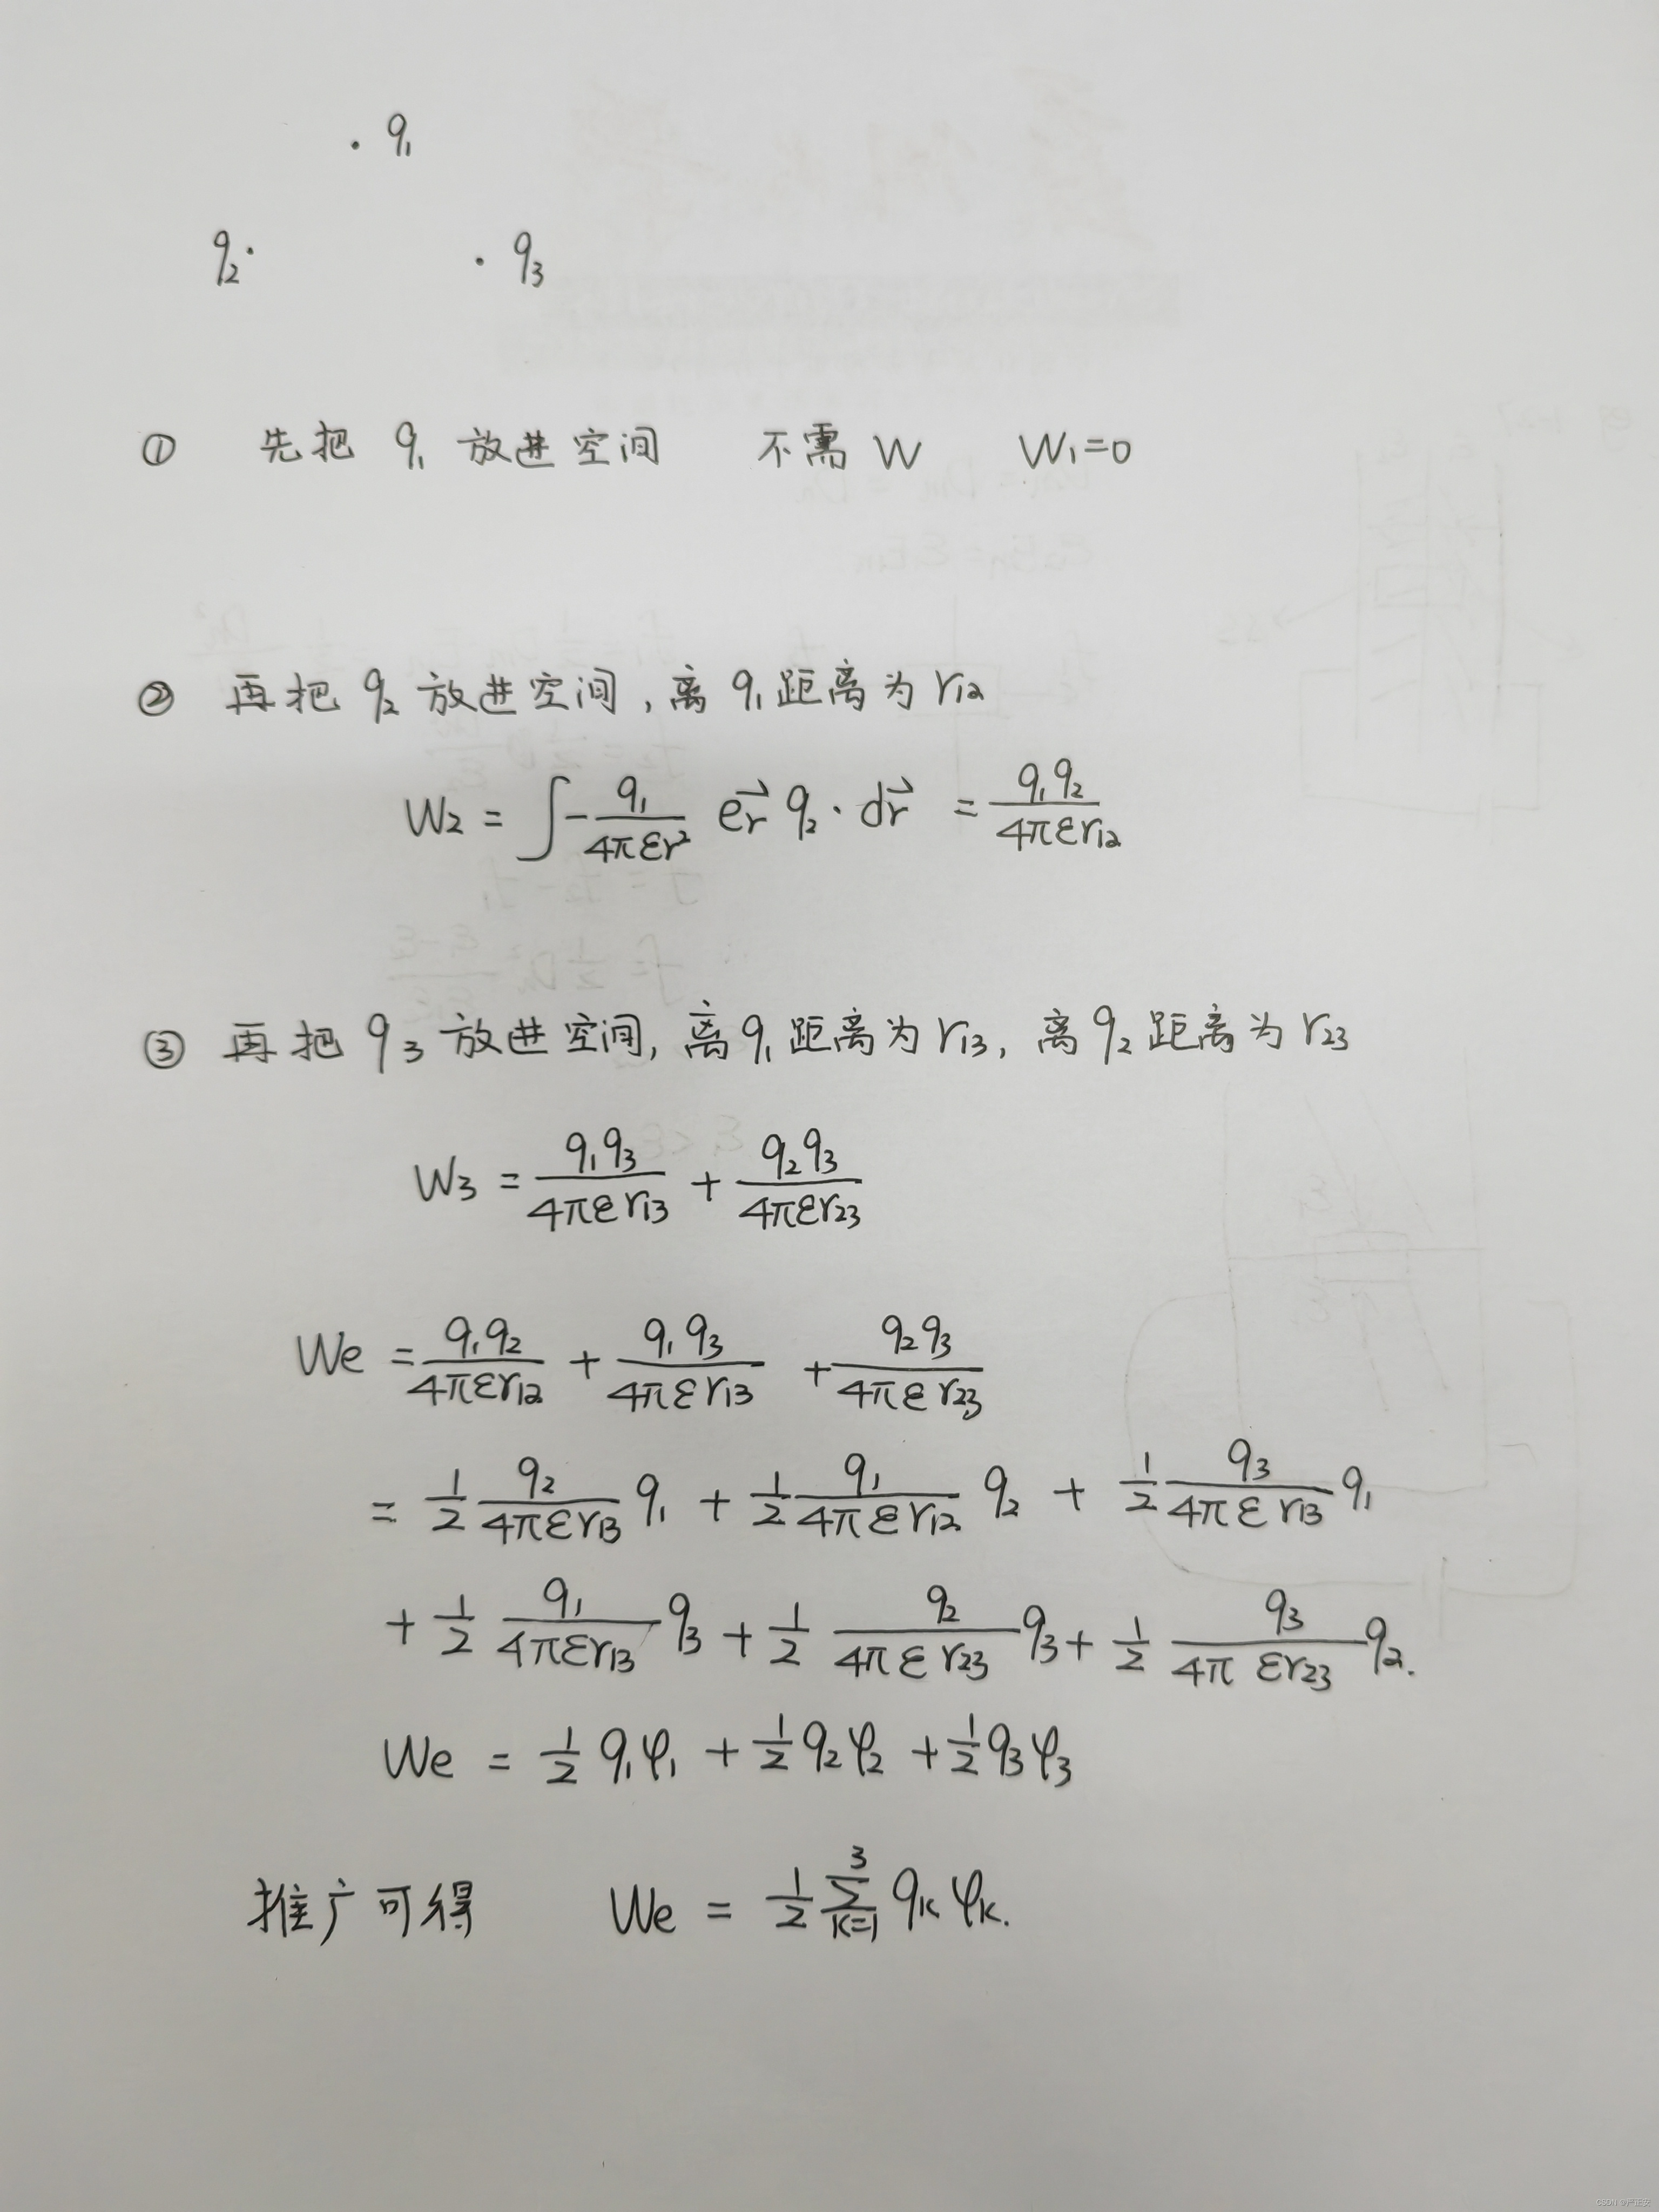 · q₁
q₂ · · q₃
① 先把 q₁ 放进空间 不需 W W₁=0
② 再把 q₂ 放进空间,离 q₁ 距离为 r₁₂
W₂ = ∫ -\frac{q₁}{4πεr²} \vec{e_r} q₂ · d\vec{r} = \frac{q₁q₂}{4πεr₁₂}
③ 再把 q₃ 放进空间,离 q₁ 距离为 r₁₃,离 q₂ 距离为 r₂₃
W₃ = \frac{q₁q₃}{4πεr₁₃} + \frac{q₂q₃}{4πεr₂₃}
We = \frac{q₁q₂}{4πεr₁₂} + \frac{q₁q₃}{4πεr₁₃} + \frac{q₂q₃}{4πεr₂₃}
= \frac{1}{2} \frac{q₂}{4πεr₁₃} q₁ + \frac{1}{2} \frac{q₁}{4πεr₁₂} q₂ + \frac{1}{2} \frac{q₃}{4πεr₁₃} q₁
+ \frac{1}{2} \frac{q₁}{4πεr₁₃} q₃ + \frac{1}{2} \frac{q₂}{4πεr₂₃} q₃ + \frac{1}{2} \frac{q₃}{4πεr₂₃} q₂.
We = \frac{1}{2} q₁φ₁ + \frac{1}{2} q₂φ₂ + \frac{1}{2} q₃φ₃
推广可得 We = \frac{1}{2} \sum_{k=1}^{3} q_k φ_k.